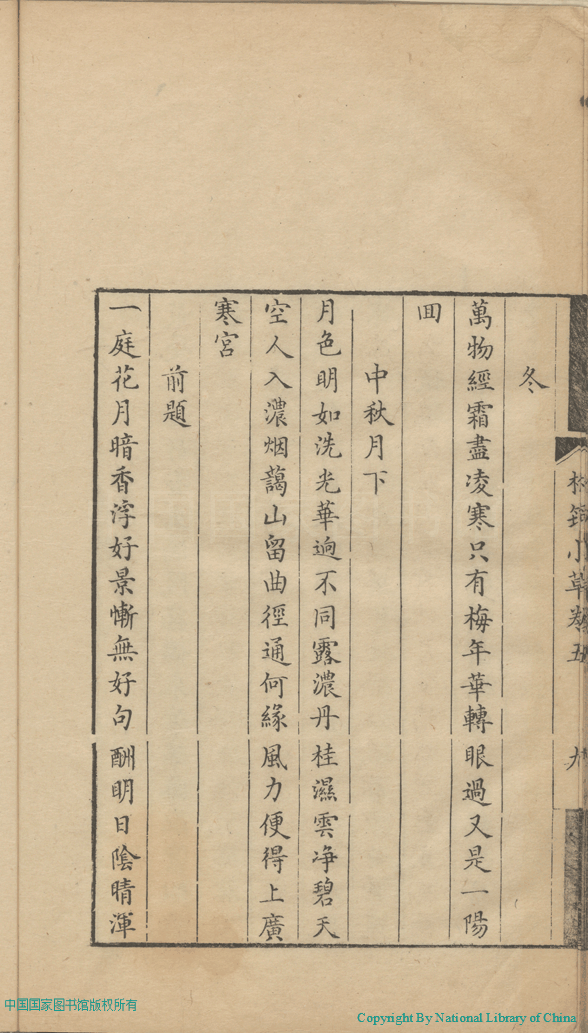 冬
萬物經霜盡凌寒只有梅年華轉眼過又是一陽
囬
中秋月下
月色明如洗光華逈不同露濃丹桂濕雲净碧天
空人入濃烟藹山留曲徑通何緣風力便得上廣
寒宮
前題
一庭花月暗香浮好景慚無好句酬明日陰晴渾
小草卷五
九
中国国家图书馆版权所有
Copyright By National Library of China